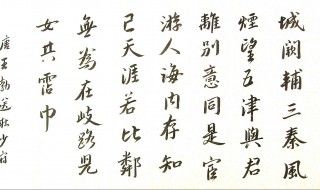 城闕輔三秦風
煙望五津與君
離別意同是宦
游人海內存知
己天涯若比鄰
無為在岐路兒
女共霑巾
唐王勃送杜少府